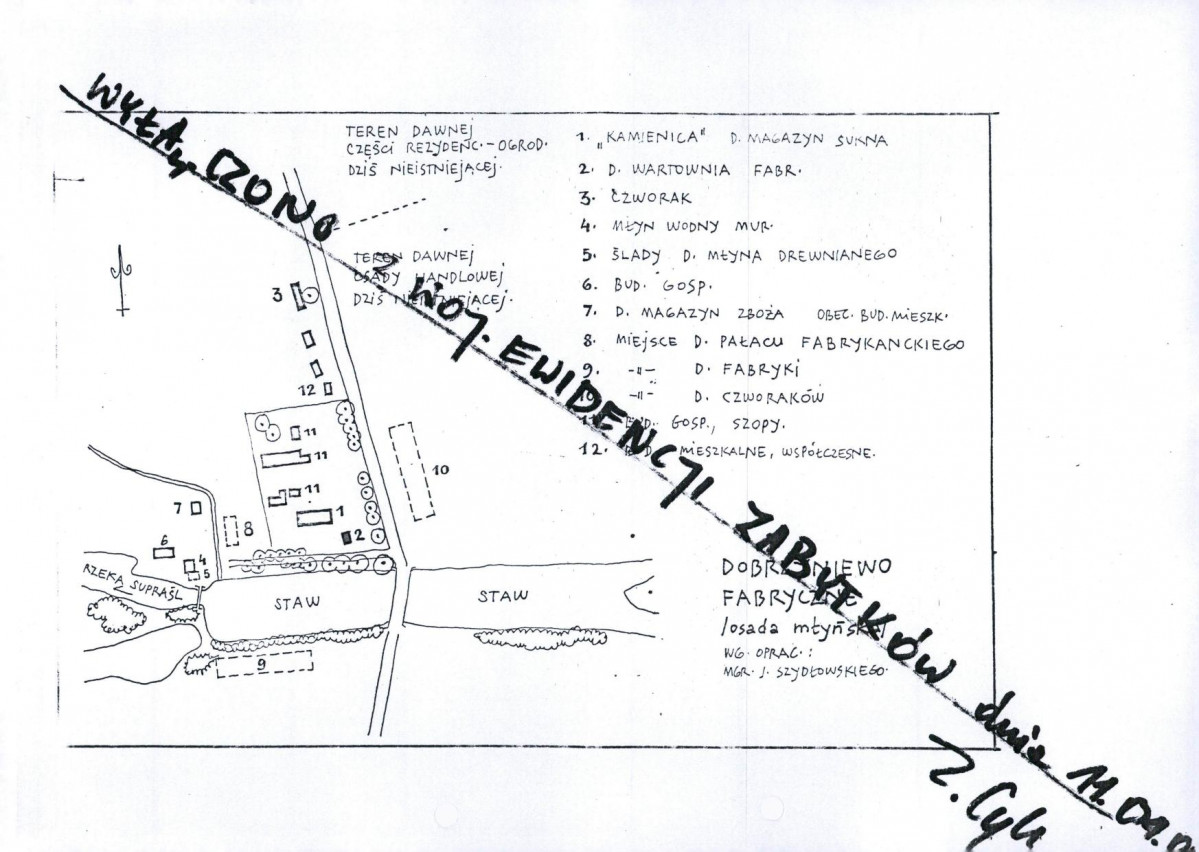 TEREN DAWNEJ
CZĘŚCI REZYDENC.-OGROD.
DZIŚ NIEISTNIEJĄCEJ.
TEREN DAWNEJ
OSADY HANDLOWEJ
DZIŚ NIEISTNIEJĄCEJ.
1. „KAMIENICA" D. MAGAZYN SUKNA
2. D. WARTOWNIA FABR.
3. CZWORAK
4. MŁYN WODNY MUR.
5. ŚLADY D. MŁYNA DREWNIANEGO
6. BUD. GOSP.
7. D. MAGAZYN ZBOŻA OBEC. BUD. MIESZK.
8. MIEJSCE D. PAŁACU FABRYKANCKIEGO
9. -"- D. FABRYKI
10. -"- D. CZWORAKÓW
11. BUD. GOSP., SZOPY.
12. BUD. MIESZKALNE, WSPÓŁCZESNE.
3
12
11
11
11
10
1
2
7
8
6
4
5
RZEKA SUPRAŚL
STAW
STAW
9
DOBRZYNIEWO
FABRYCZNE
/osada młyńska/
WG. OPRAC.:
MGR. J. SZYDŁOWSKIEGO.
WYŁĄCZONO Z WOJ. EWIDENCJI ZABYTKÓW dnia 11.